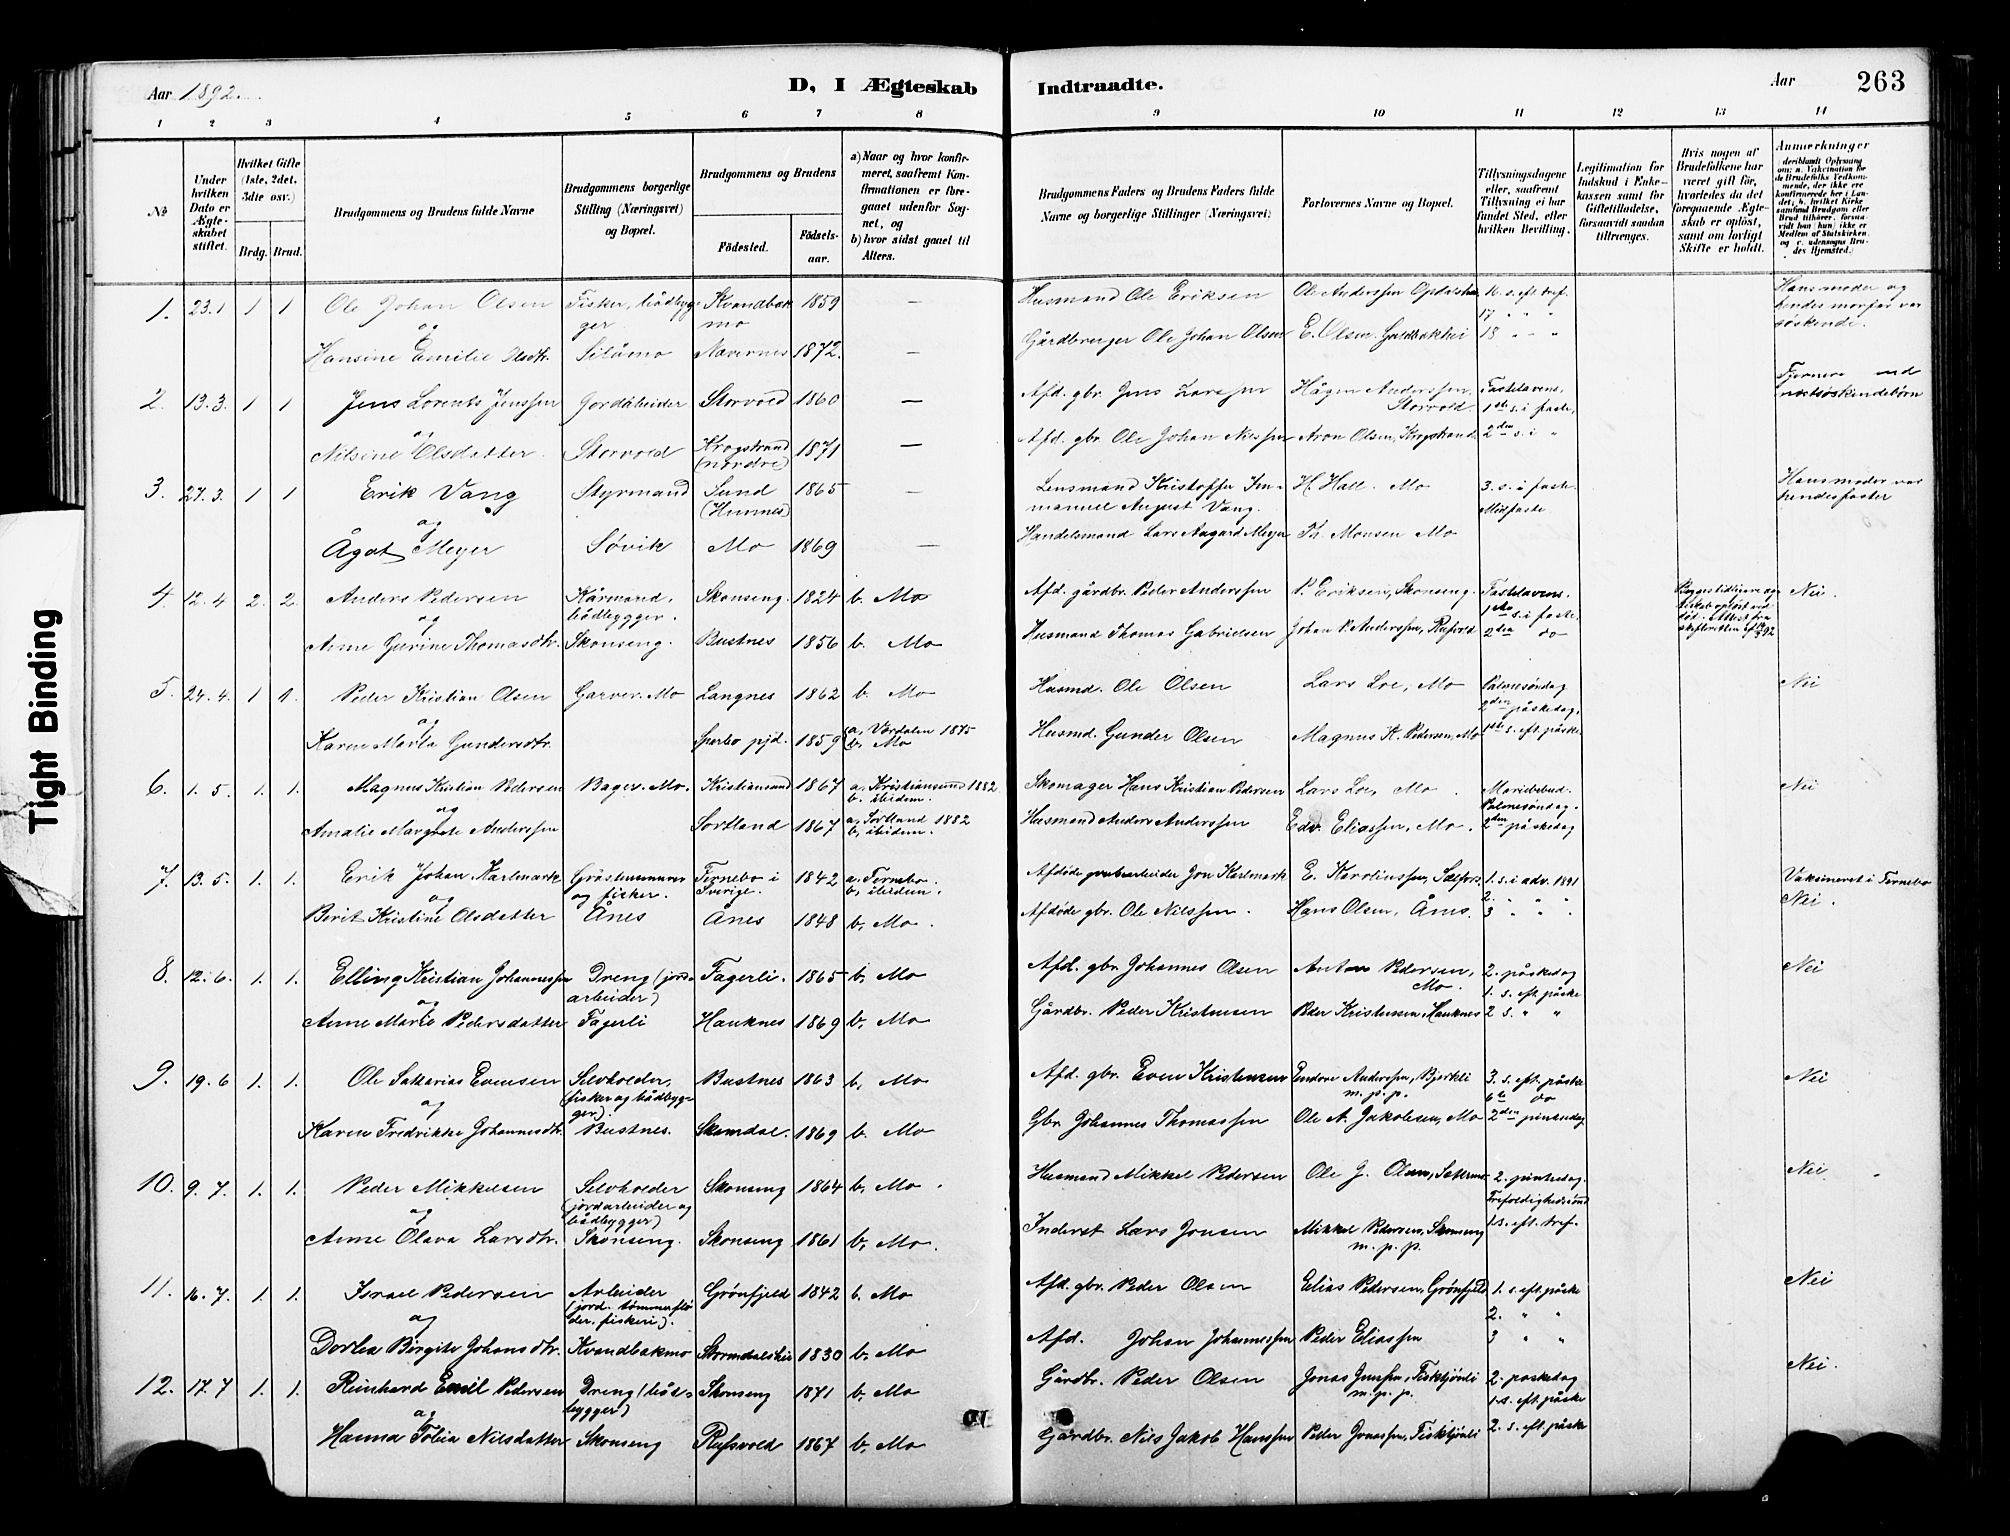 Tight Binding
Aar 1892.
D, I Ægteskab Indtraadte.
Aar 263
1 2 3 4 5 6 7 8 9 10 11 12 13 14
№
Under hvilken Dato er Ægteskabet stiftet.
Hvilket Gifte (1ste, 2det, 3die osv.)
Brdg. Brud.
Brudgommens og Brudens fulde Navne
Brudgommens borgerlige Stilling (Næringsvei) og Bopæl.
Brudgommens og Brudens
Födested.
Födselsaar.
a) Naar og hvor konfirmeret, saafremt Konfirmationen er foregaaet udenfor Sognet, og
b) hvor sidst gaaet til Alters.
Brudgommens Faders og Brudens Faders fulde Navne og borgerlige Stillinger (Næringsvei)
Forlovernes Navne og Bopæl.
Tillysningsdagene eller, saafremt Tillysning ei har fundet Sted, efter hvilken Bevilling.
Legitimation for Indskud i Enkekassen samt for Giftetilladelse, forsaavidt saadan tiltrænges.
Hvis nogen af Brudefolkene har været gift för, hvorledes da det foregaaende Ægteskab er oplöst, samt om lovligt Skifte er holdt.
Anmærkninger
1. 23.1 1 1 Ole Johan Olsen Fisker, bådbygger Kvandbakmo 1859 — Husmand Ole Eriksen Ole Anderssen 16. s. eft. tref. Hans moder og
og 17 " " " hendes morfar var
Hansine Emilie Olsdtr. Nævernes 1872. — Gårdbruger Ole Johan Olsen E. Olsen 18 " - " søskende.
2. 13.3. 1 1 Jens Lorents Jenssen Jordarbeider Storvold 1860 — Afd. gbr. Jens Larssen Hågen Anderssen, Storvold Fastelavens, 1ste s. i faste,
og
Nilsine Olsdatter. Storvold Krogstrand (nordre) 1871 — Afd. gbr. Ole Johan Nilssen Aron Olsen, Krogstrand 2den s. i "
3. 27.3. 1 1 Erik Vang Styrmand Sund (Hemnes) 1865 — Lensmand Kristoffer Immanuel August Vang. H. Hall. Mo 3. s. i faste. Midfaste Hans moder var hendes faster
og
Ågot Meyer Søvik Mo 1869 — Handelsmand Lars Aagard Meyer Th. Monsen Mo
4. 12.4 2. 2. Anders Pedersen Kårmand, bådbygger. Skonseng. 1824 b. Mo Afd. gårdbr. Peder Anderssen P. Eriksen, Skonseng. Fastelavens, 1ste s. i faste, Nei.
og
Anne Gurine Thomasdtr. Skonseng. Bustnes 1856 b. Mo Husmand Thomas Gabrielsen Johan P. Anderssen, Rufsvold 2den do
5. 24.4. 1 1. Peder Kristian Olsen Garver. Mo Langnes 1862 b. Mo Husmd. Ole Olsen Lars Loe, Mo Palmesøndag 2den påskedag, Nei
og
Karen Marta Gundersdtr. Sparbo pjd. 1859 a. Værdalen 1875 b. Mo Husmd. Gunder Olsen Magnus K. Pedersen, Mo 1ste s. eft. påske
6. 1.5. 1. 1. Magnus Kristian Pedersen Bager. Mo. Kristiansund 1867 a. Kristiansund 1882 b. ibidem. Skomager Hans Kristian Pedersen Lars Loe, Mo. Mariebebud. Palmesøndag. Nei
og
Amalie Margrete Anderssen Sortland 1867 a. Sortland 1882 b. ibidem. Husmand Anders Anderssen Edv. Eliassen, Mo. 2den påskedag
7. 13.5. 1. 1. Erik Johan Karlmark Gråstensmurer og fisker. Fernebo i Sverige. 1842 a. Fernebo. b. ibidem. Afdøde grubearbeider Jon Karlmark E. Karolinssen, 1. s. i adv. 1891 Vaksineret i Fernebo
og 2. " " " Nei.
Berit Kristine Olsdatter Ånes Ånes 1848 b. Mo. Afdøde gbr. Ole Nilssen. Hans Olsen, Ånes. 3 " " "
8. 12.6. 1. 1. Elling Kristian Johannessen Dreng (jordarbeider) Fagerli. 1865 b. Mo Afd. gbr. Johannes Olsen Anton Pedersen, Mo. 2. påskedag 1. s. eft. påske Nei
og
Anne Marie Pedersdatter Fagerli Hauknes 1869 b. Mo Gårdbr. Peder Kristensen Peder Kristensen, Hauknes 2 s. " "
9. 19.6 1. 1. Ole Sakarias Evensen Selvholder, (fisker og bådbygger). Bustnes 1863 b. Mo Afd. gbr. Even Kristensen Endore Anderssen, Bjerkli m.p.p. 3. s. eft. påske 6te do Nei
og
Karen Fredrikke Johannesdtr. Bustnes. 1869 b. Mo Gbr. Johannes Thomassen Ole A. Jakobsen, Mo 2den pintsedag
10. 9.7. 1. 1. Peder Mikkelsen Selvholder (jordarbeider og bådbygger) Skonseng 1864 b. Mo. Husmand Mikkel Pedersen Ole G. Olsen, 2. pintsedag. Trefoldighedssønd Nei
og
Anne Olava Larsdtr. Skonseng. Skonseng 1861 b. Mo. Inderst Lars Jonsen Mikkel Pedersen, Skonseng m.p.p. 1. s. eft. tref.
11. 16.7. 1. 1. Israel Pedersen Arbeider (jord. tømmerfløder. fiskeri). Grønfjeld 1842 b. Mo Afd. gbr. Peder Olsen Elias Pedersen, Grønfjeld 1. s. eft. påske Nei
og 2. " "
Dorlea Birgite Johansdtr. Kvandbakmo Stormdalshei 1830 b. Mo Afd. Johan Johannessen Peder Eliassen 3 " "
12. 17.7 1. 1. Reinhard Emil Pedersen Dreng (bådbygger) Skonseng 1871 b. Mo Gårdbr. Peder Olsen Jonas Jenssen, Fisktjønli m.p.p. 2. påskedag 1. s. eft. påske Nei.
og
Hanna Tobia Nilsdatter Skonseng Rufsvold 1867 b. Mo Gårdbr. Nils Jakob Hanssen Peder Jonassen, Fisktjønli 2. s. eft. påske